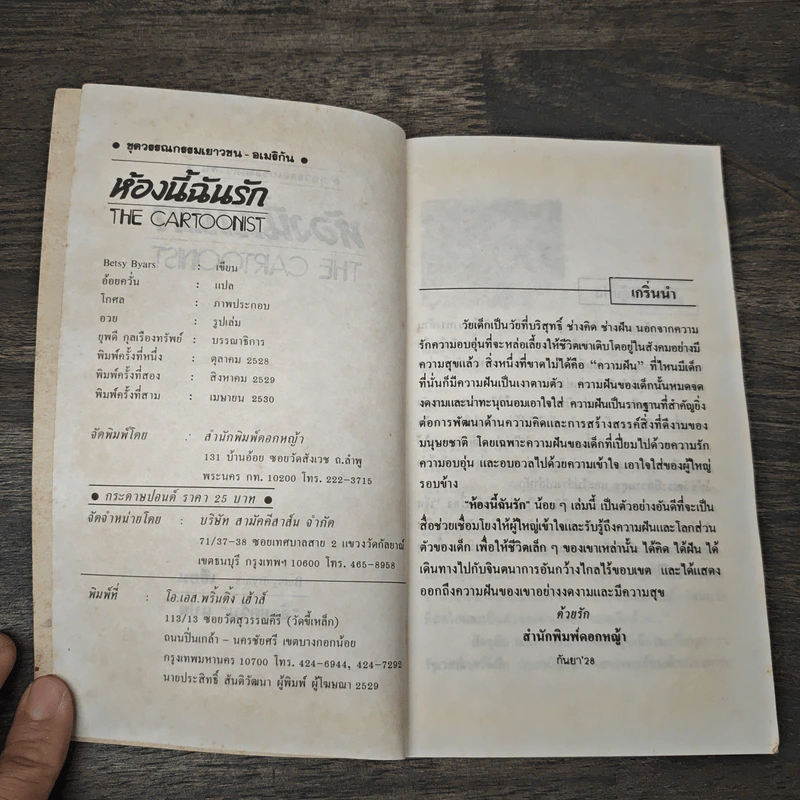 ● ชุดวรรณกรรมเยาวชน - อเมริกัน ●
ห้องนี้ฉันรัก
THE CARTOONIST
Betsy Byars : เขียน
อ้อยควั่น : แปล
โกศล : ภาพประกอบ
อวย : รูปเล่ม
ยุพดี กุลเรืองทรัพย์ : บรรณาธิการ
พิมพ์ครั้งที่หนึ่ง : ตุลาคม 2528
พิมพ์ครั้งที่สอง : สิงหาคม 2529
พิมพ์ครั้งที่สาม : เมษายน 2530
จัดพิมพ์โดย : สำนักพิมพ์ดอกหญ้า
131 บ้านอ้อย ซอยวัดสังเวช ถ.ลำพู
พระนคร กท. 10200 โทร. 222-3715
● กระดาษปอนด์ ราคา 25 บาท ●
จัดจำหน่ายโดย : บริษัท สามัคคีสาส์น จำกัด
71/37-38 ซอยเทศบาลสาย 2 แขวงวัดกัลยาณ์
เขตธนบุรี กรุงเทพฯ 10600 โทร. 465-8958
พิมพ์ที่ : โอ.เอส.พริ้นติ้ง เฮ้าส์
113/13 ซอยวัดสุวรรณคีรี (วัดขี้เหล็ก)
ถนนปิ่นเกล้า - นครชัยศรี เขตบางกอกน้อย
กรุงเทพมหานคร 10700 โทร. 424-6944, 424-7292
นายประสิทธิ์ สันติวัฒนา ผู้พิมพ์ ผู้โฆษณา 2529
เกริ่นนำ
วัยเด็กเป็นวัยที่บริสุทธิ์ ช่างคิด ช่างฝัน นอกจากความ
รักความอบอุ่นที่จะหล่อเลี้ยงให้ชีวิตเขาเติบโตอยู่ในสังคมอย่างมี
ความสุขแล้ว สิ่งหนึ่งที่ขาดไม่ได้คือ “ความฝัน” ที่ไหนมีเด็ก
ที่นั่นก็มีความฝันเป็นเงาตามตัว ความฝันของเด็กนั้นหมดจด
งดงามและน่าทะนุถนอมเอาใจใส่ ความฝันเป็นรากฐานที่สำคัญยิ่ง
ต่อการพัฒนาด้านความคิดและการสร้างสรรค์สิ่งที่ดีงามของ
มนุษยชาติ โดยเฉพาะความฝันของเด็กที่เปี่ยมไปด้วยความรัก
ความอบอุ่น และอบอวลไปด้วยความเข้าใจ เอาใจใส่ของผู้ใหญ่
รอบข้าง
"ห้องนี้ฉันรัก" น้อย ๆ เล่มนี้ เป็นตัวอย่างอันดีที่จะเป็น
สื่อช่วยเชื่อมโยงให้ผู้ใหญ่เข้าใจและรับรู้ถึงความฝันและโลกส่วน
ตัวของเด็ก เพื่อให้ชีวิตเล็ก ๆ ของเขาเหล่านั้น ได้คิด ได้ฝัน ได้
เดินทางไปกับจินตนาการอันกว้างไกลไร้ขอบเขต และได้แสดง
ออกถึงความฝันของเขาอย่างงดงามและมีความสุข
ด้วยรัก
สำนักพิมพ์ดอกหญ้า
กันยา'28